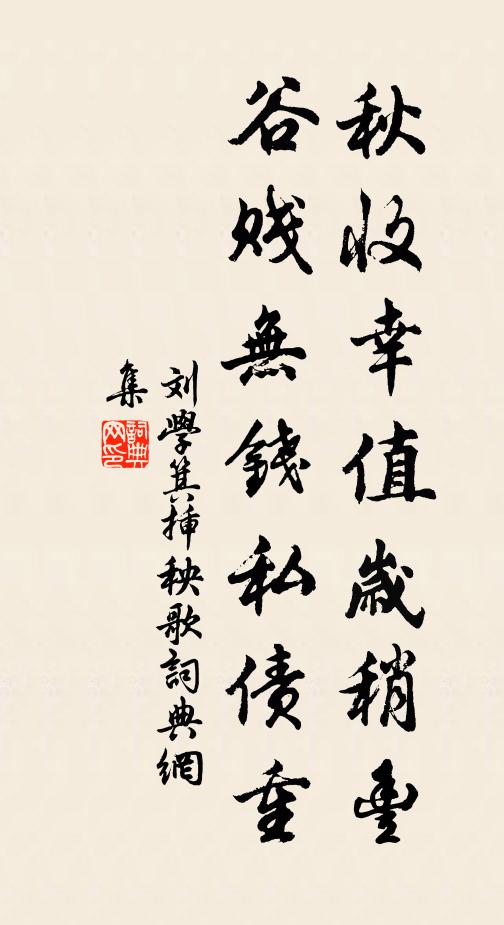 秋收幸值歲稍豐
谷賤無錢私債重
刘學箕揷秧歌詞典網
集
詞典網印